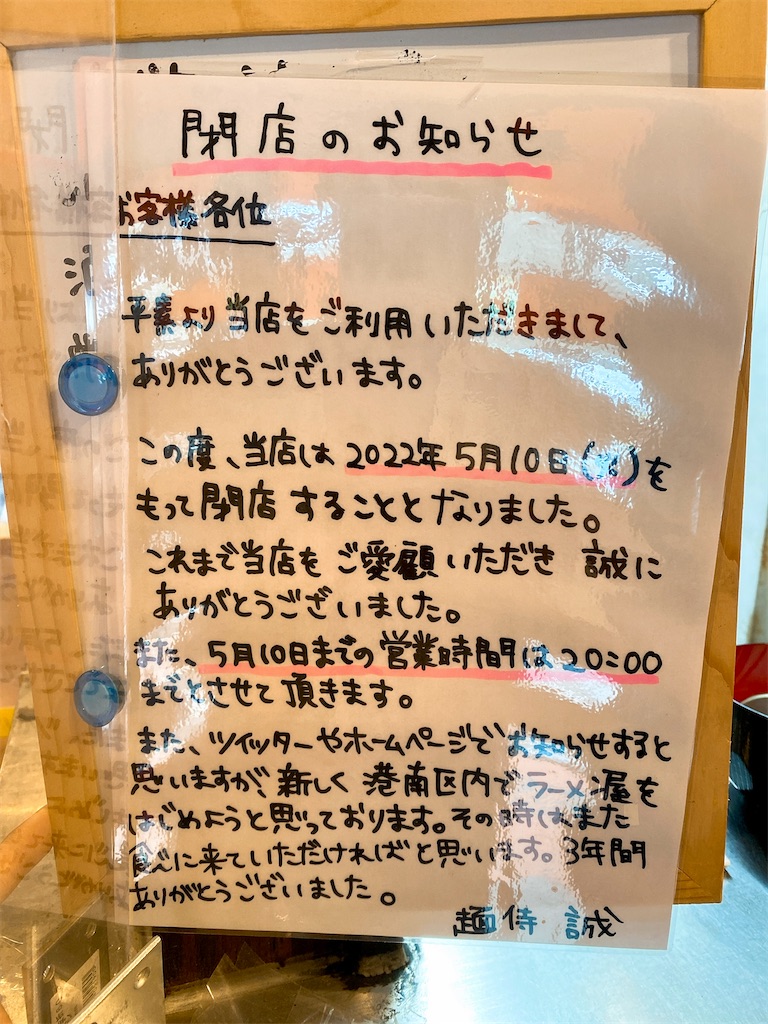 閉店のお知らせ
お客様各位
平素より当店をご利用いただきまして、
ありがとうございます。
この度、当店は2022年5月10日(火)を
もって閉店することとなりました。
これまで当店をご愛顧いただき 誠に
ありがとうございました。
また、5月10日までの営業時間は20:00
までとさせて頂きます。
また、ツイッターやホームページでお知らせすると
思いますが、新しく港南区内でラーメン屋を
はじめようと思っております。その時はまた
食べに来ていただければと思います。3年間
ありがとうございました。
麺侍 誠